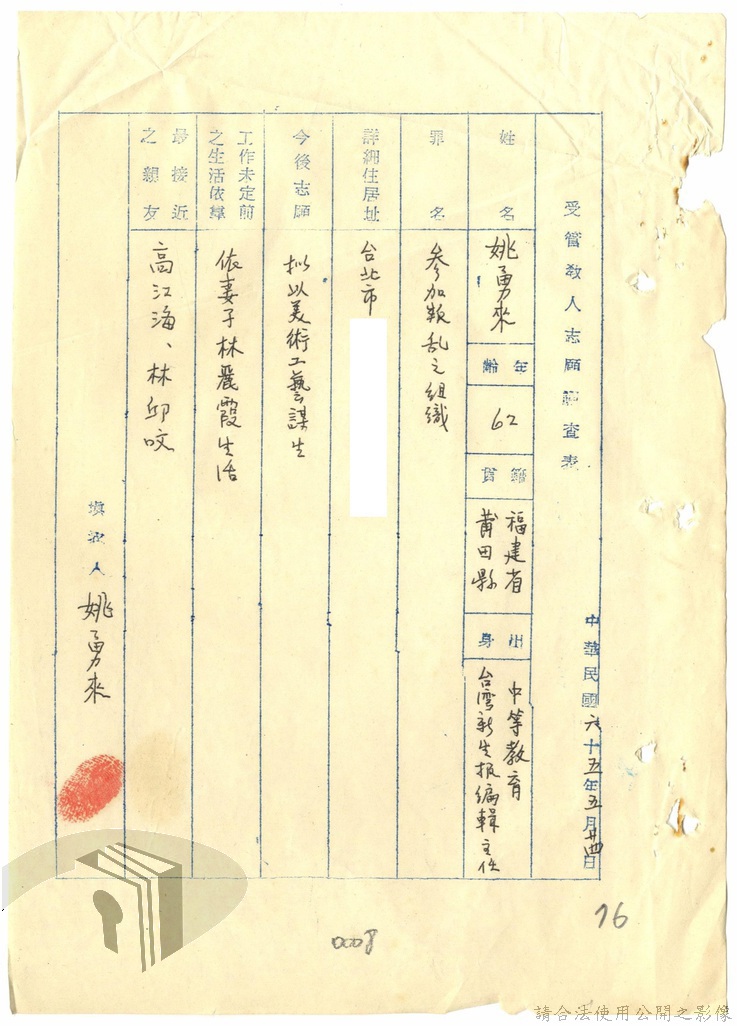 受管教人志願調查表
中華民國六十五年五月廿四日
姓名
姚勇來
年齡
62
籍貫
福建省
莆田縣
出身
中等教育
台灣新生报編輯主任
罪名
參加叛乱之組織
詳細住居址
台北市
今後志願
拟以美術工藝謀生
工作未定前
之生活依靠
依妻子林麗霞生活
最接近
之親友
高江海、林邱咬
填表人 姚勇來
16
0008
請合法使用公開之影像